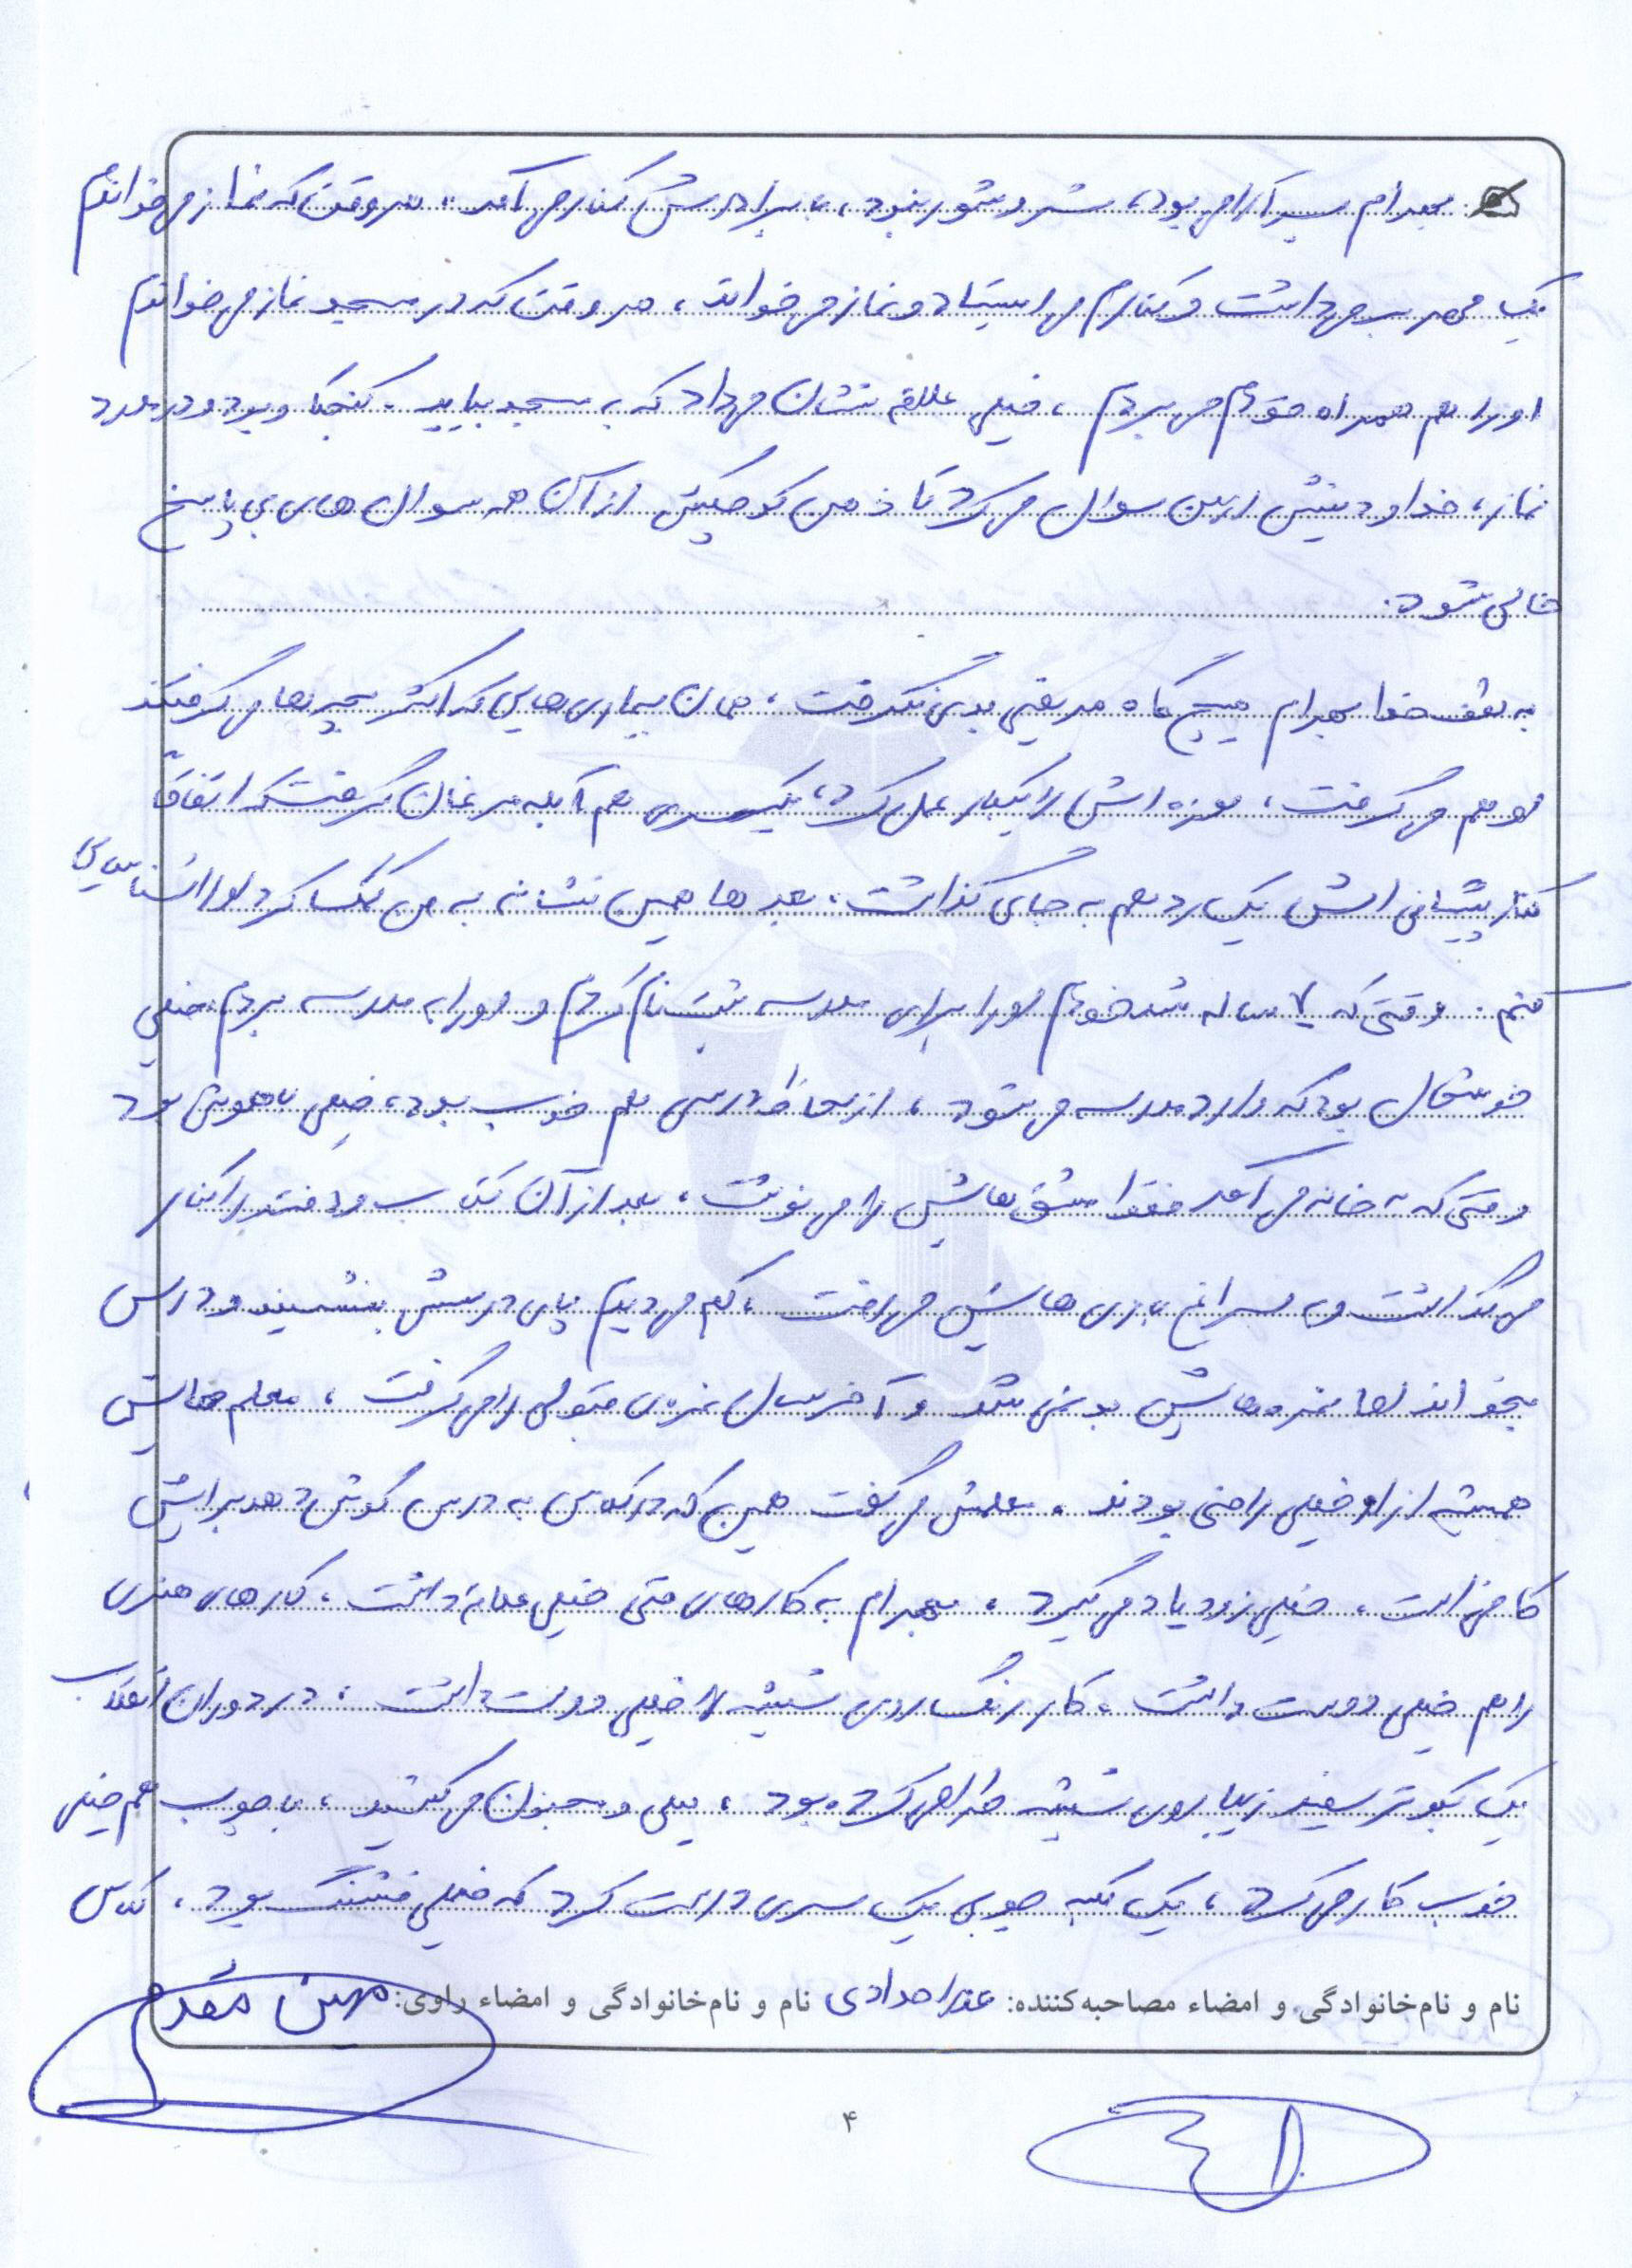 بهرام پسر آرامی بود، شر و شور نبود، با برادرش کنار می آمد، هر وقت که نماز می خواندم
یک مهر بر می داشت و کنارم می ایستاد و نماز می خواند، هر وقت که در مسجد نماز می خواندم
او را هم همراه خودم می بردم، خیلی علاقه نشان می داد که به مسجد بیاید. کنجکاو بود و در مورد
نماز، خدا و دینش از من سوال می کرد تا ذهن کوچکش از آن همه سوال های بی پاسخ
خالی شود.
به لطف خدا بهرام هیچ گاه مریضی بدی نگرفت، همان بیماری هایی که اکثر بچه ها می گرفتند
او هم می گرفت، لوزه اش را یکبار عمل کرد، یکسری هم آبله مرغان گرفت که اتفاقاً
کنار پیشانی اش یک رد هم به جای گذاشت، بعدها همین نشانه به من کمک کرد او را شناسایی
کنم. وقتی که ۷ ساله شد خودم او را برای مدرسه ثبت نام کردم و او را به مدرسه بردم خیلی
خوشحال بود که وارد مدرسه می شود، از لحاظ درسی هم خوب بود، خیلی باهوش بود
وقتی که به خانه می آمد فقط مشق هایش را می نوشت، بعد از آن کتاب و دفتر را کنار
می گذاشت و به سراغ بازی هایش می رفت، کم می دیدم پای درسش بنشیند و درس
بخواند اما نمره هایش بد نمی شد و آخر سال نمره ی قبولی را می گرفت، معلم هایش
همیشه از او خیلی راضی بودند، معلمش می گفت همین که در کلاس به درس گوش دهد برایش
کافی است، خیلی زود یاد می گیرد، بهرام به کارهای فنی خیلی علاقه داشت، کارهای هنری
را هم خیلی دوست داشت، کار رنگ روی شیشه را خیلی دوست داشت، در دوران انقلاب
یک کبوتر سفید زیبا روی شیشه طراحی کرده بود، لیلی و مجنون می کشید، با چوب هم خیلی
خوب کار می کرد، یک تکه چوبی یک سری درست کرد که خیلی قشنگ بود، کلاس
نام و نام‌خانوادگی و امضاء مصاحبه‌کننده: عذرا حدادی نام و نام‌خانوادگی و امضاء راوی: مهین مقدم
۴